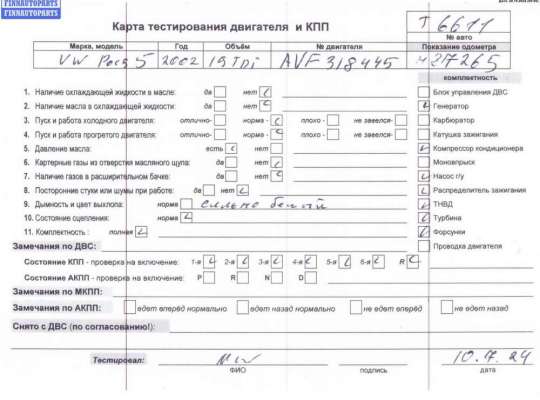 FINNAUTOPARTS
FINNAUTOPARTS
Карта тестирования двигателя и КПП
Т 6611
№ авто
Марка, модель Год Объём № двигателя Показание одометра
VW 5 2002 1.9 TDI AVF 318445 217265
комплектность
1. Наличие охлаждающей жидкости в масле: да нет
2. Наличие масла в охлаждающей жидкости: да нет
3. Пуск и работа холодного двигателя: отлично- норма - плохо - не завелся-
4. Пуск и работа прогретого двигателя: отлично- норма - плохо - не завелся-
5. Давление масла: есть нет
6. Картерные газы из отверстия масляного щупа: да нет
7. Наличие газов в расширительном бачке: да нет
8. Посторонние стуки или шумы при работе: да нет
9. Дымность и цвет выхлопа: норма сильно белый
10. Состояние сцепления: норма
11. Комплектность : полная
Блок управления ДВС
Генератор
Карбюратор
Катушка зажигания
Компрессор кондиционера
Моновпрыск
Насос г/у
Распределитель зажигания
ТНВД
Турбина
Форсунки
Проводка двигателя
Замечания по ДВС:
Состояние КПП - проверка на включение: 1-я 2-я 3-я 4-я 5-я 6-я R
Состояние АКПП - проверка на включение: P R N D
Замечания по МКПП:
Замечания по АКПП: едет вперёд нормально едет назад нормально не едет вперёд не едет назад
Снято с ДВС (по согласованию!):
Тестировал: 10.7.24
ФИО подпись дата